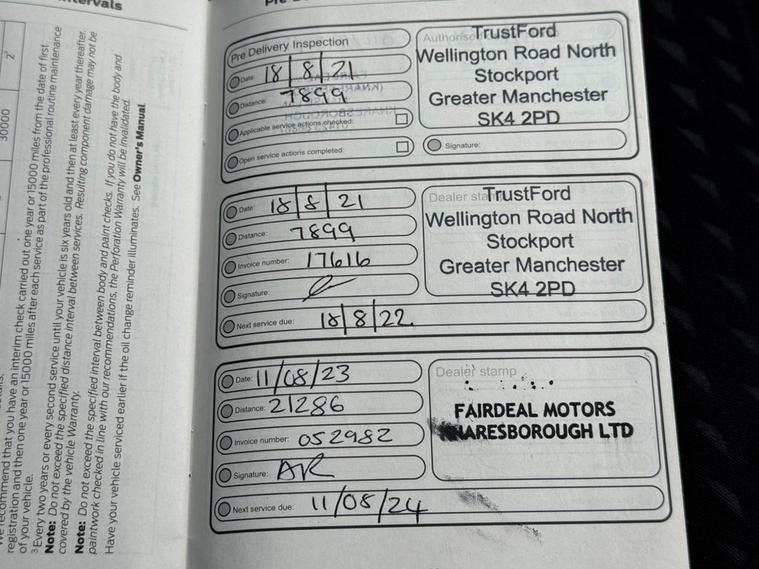 ntervals
30000
2¹
We recommend that you have an interim check carried out one year or 15000 miles from the date of first
registration and then one year or 15000 miles after each service as part of the professional routine maintenance
of your vehicle.
³ Every two years or every second service until your vehicle is six years old and then at least every year thereafter.
Note: Do not exceed the specified distance interval between services. Resulting component damage may not be
covered by the vehicle Warranty.
Note: Do not exceed the specified interval between body and paint checks. If you do not have the body and
paintwork checked in line with our recommendations, the Perforation Warranty will be invalidated.
Have your vehicle serviced earlier if the oil change reminder illuminates. See Owner's Manual.
Pre Delivery Inspection
Date: 18/8/21
Distance: 7899
Applicable service actions checked:
Open service actions completed:
Authorise
TrustFord
Wellington Road North
Stockport
Greater Manchester
SK4 2PD
Signature:
Date: 18/8/21
Distance: 7899
Invoice number: 17616
Signature:
Next service due: 18/8/22
Dealer sta
TrustFord
Wellington Road North
Stockport
Greater Manchester
SK4 2PD
Date: 11/08/23
Distance: 21286
Invoice number: 052982
Signature: AR
Next service due: 11/08/24
Dealer stamp
FAIRDEAL MOTORS
KNARESBOROUGH LTD